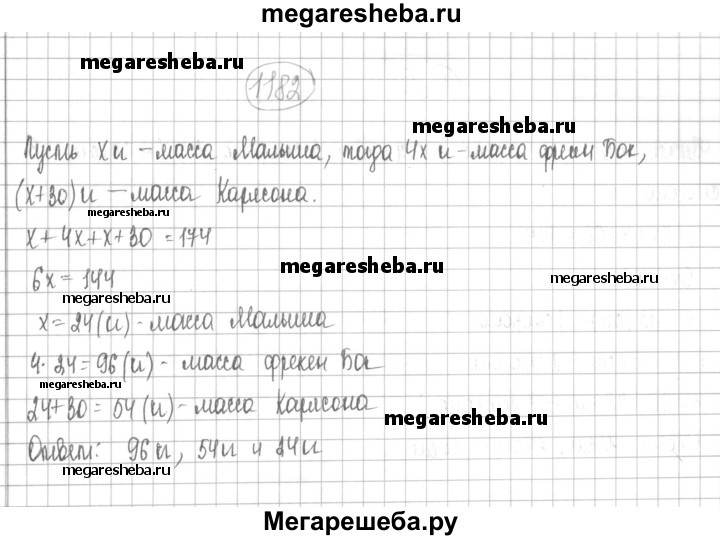 megaresheba.ru
megaresheba.ru
1182
Пусть x и – масса Малыша, тогда 4x и – масса фрекен Бок,
(x+30) и – масса Карлсона.
megaresheba.ru
x+4x+x+30=174
megaresheba.ru
6x=144
megaresheba.ru
megaresheba.ru
x=24(и) - масса Малыша
4·24=96(и) - масса фрекен Бок
megaresheba.ru
24+30=54(и) - масса Карлсона
megaresheba.ru
Ответ: 96и, 54и и 24и
megaresheba.ru
Мегарешеба.ру